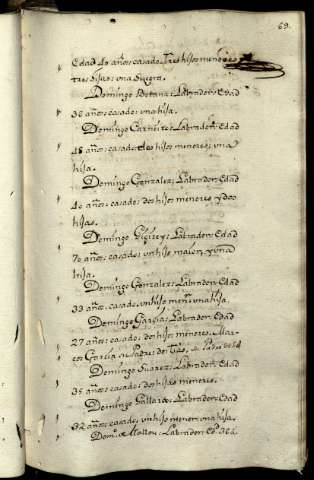 69.
Edad 40 años: casado: Tres hijos menores
tres hijas: una suegra.
Domingo Butana: Labrador: Edad
36 años: casado: una hija.
Domingo Carneiro: Labrador: Edad
48 años: casado: dos hijos menores: una
hija.
Domingo Gonzalez: Labrador: Edad
40 años: casado: dos hijos menores y dos
hijas.
Domingo Labrador: Edad
70 años: casado: un hijo maior, y una
hija.
Domingo Gonzalez: Labrador: Edad
33 años: casado: un hijo menor: una hija.
Domingo Garcia: Labrador: Edad
27 años: casado: dos hijos menores: Mar-
cos Garcia su Padre
Domingo Suarez: Labrador: Edad
35 años: casado: dos hijas menores.
Domingo Gallardo: Labrador: Edad
32 años: casado: un hijo menor: una hija.
Labrador: Ed.